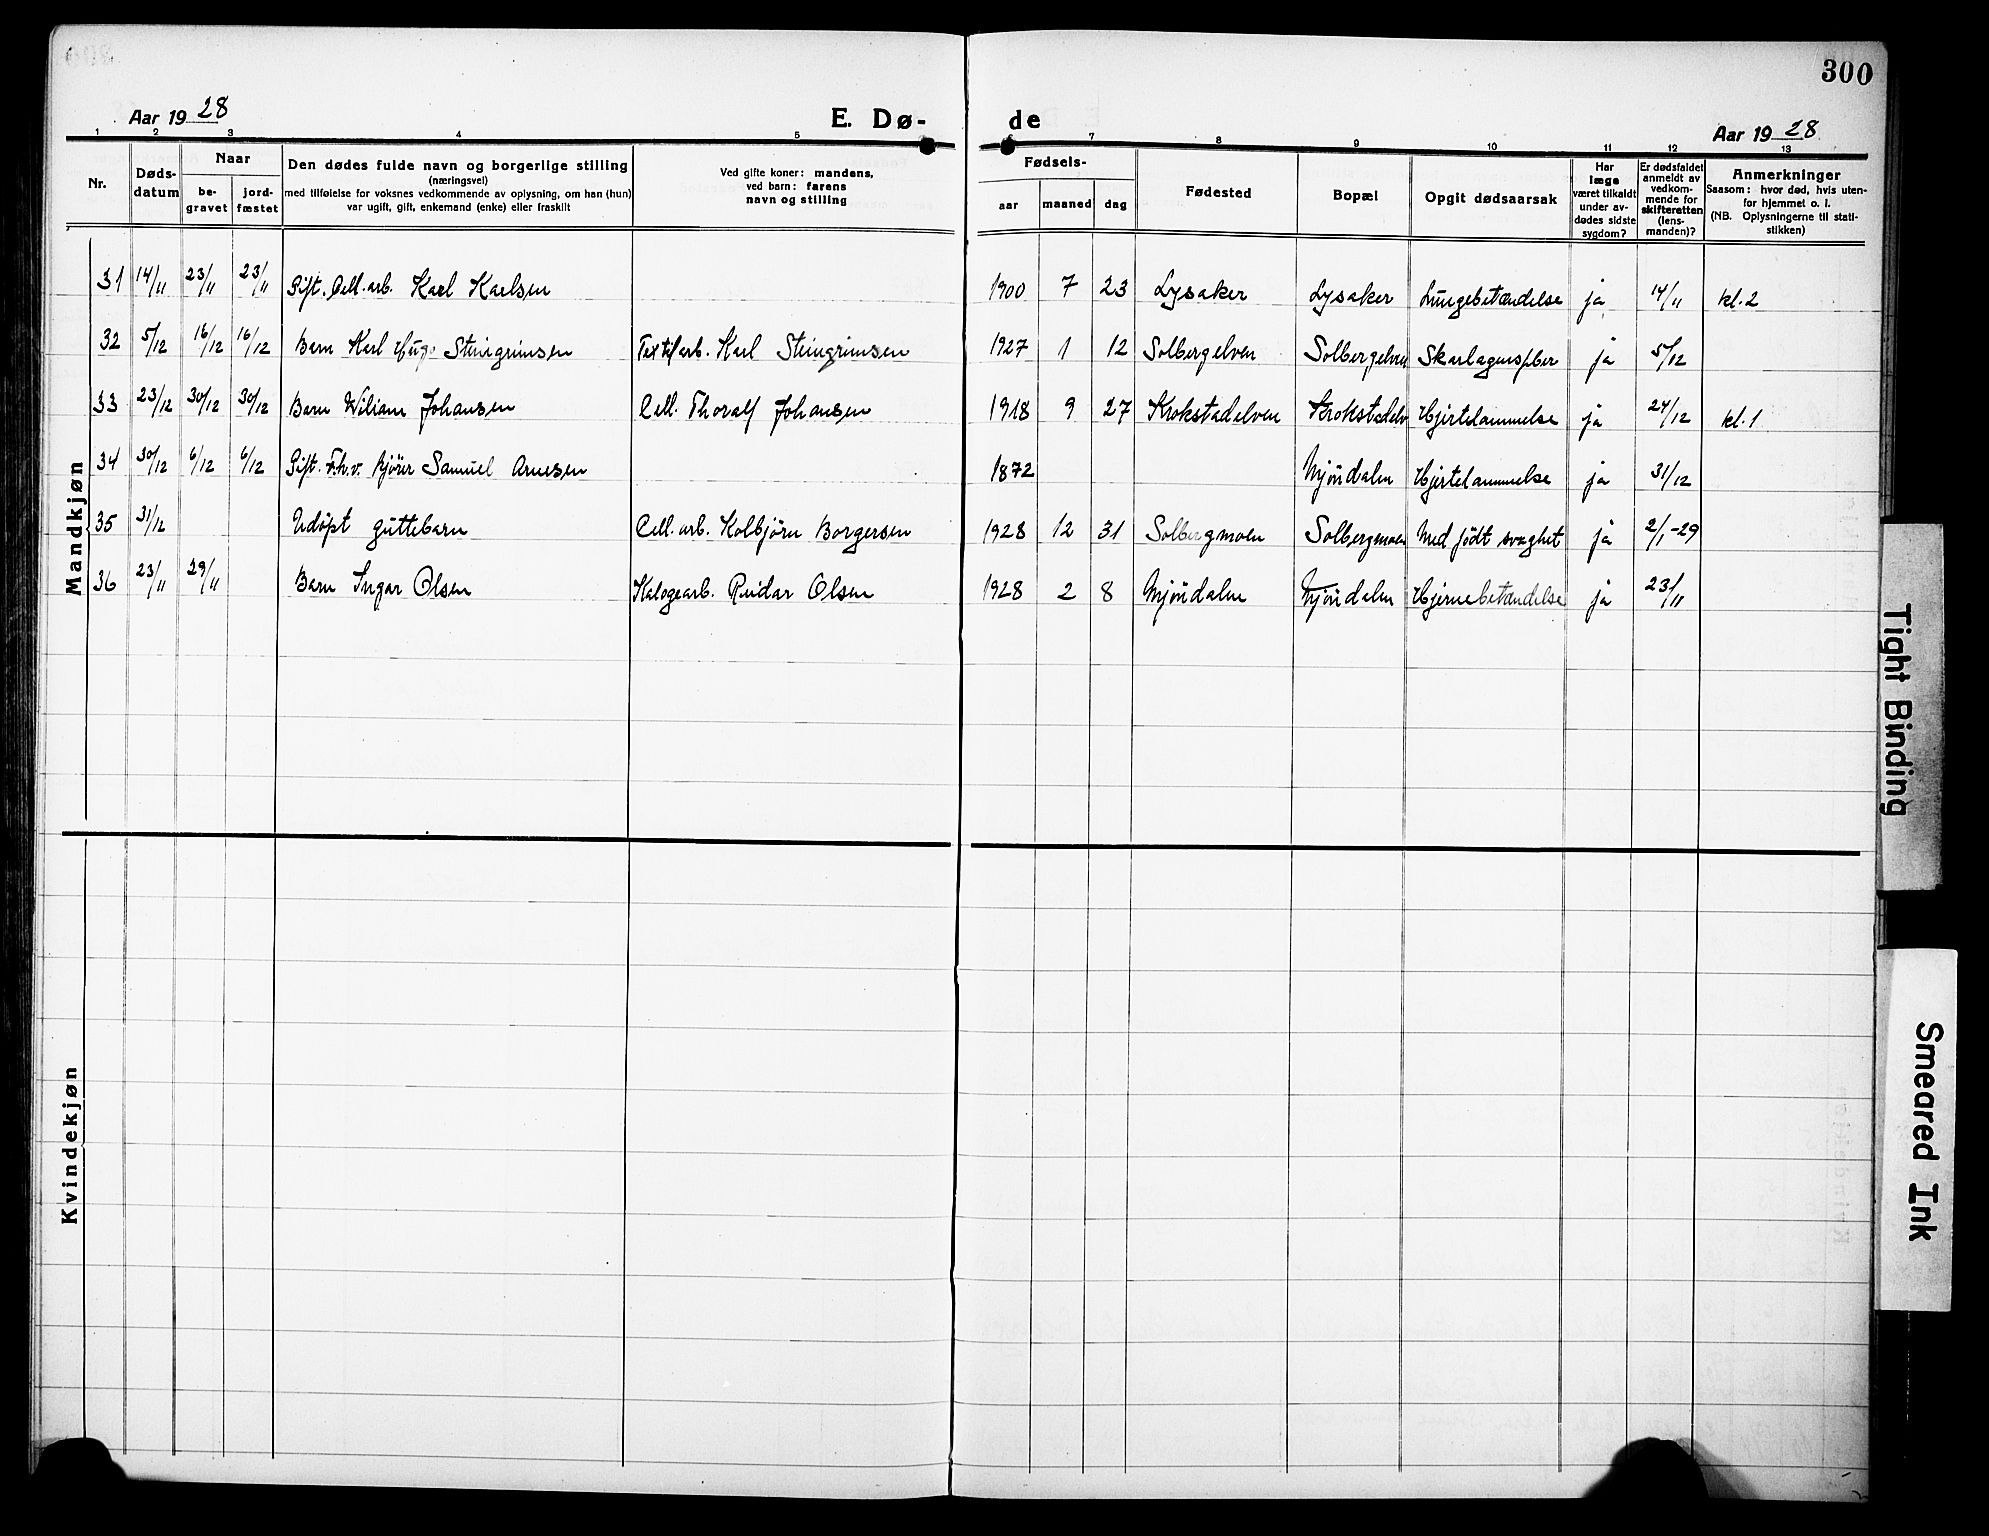 300
Aar 1928 E. Dø- de Aar 1928
1 2 3 4 5 6 7 8 9 10 11 12 13
Nr. Døds-datum Naar be-gravet jord-fæstet Den dødes fulde navn og borgerlige stilling (næringsvei) med tilføielse for voksnes vedkommende av oplysning, om han (hun) var ugift, gift, enkemand (enke) eller fraskilt Ved gifte koner: mandens, ved barn: farens navn og stilling Fødsels- aar maaned dag Fødested Bopæl Opgit dødsaarsak Har læge været tilkaldt under av-dødes sidste sygdom? Er dødsfaldet anmeldt av vedkom-mende for skifteretten (lens-manden)? Anmerkninger Saasom: hvor død, hvis uten-for hjemmet o. l. (NB. Oplysningerne til stati-stikken)
Mandkjøn
31 14/11 23/11 23/11 Gift. Cell. arb. Karl Karlsen 1900 7 23 Lysaker Lysaker Lungebetændelse ja 14/11 kl. 2
32 5/12 16/12 16/12 Barn Karl Hugo Steingrimsen Textilarb. Karl Steingrimsen 1927 1 12 Solbergelven Solbergelven Skarlagensfber ja 5/12
33 23/12 30/12 30/12 Barn Wiliam Johansen Cell. Thoralf Johansen 1918 9 27 Krokstadelven Krokstadelv Hjertelammelse ja 24/12 kl. 1
34 30/12 6/12 6/12 Gift. Fh.v. kjører Samuel Arnesen 1872 Mjöndalen Hjertelammelse ja 31/12
35 31/12 Udöpt guttebarn Cell. arb. Kolbjörn Borgersen 1928 12 31 Solbergmoen Solbergmoen Med födt svaghet ja 2/1-29
36 23/11 29/11 Barn Ingar Olsen Kalogearb. Reidar Olsen 1928 2 8 Mjöndalen Mjöndalen Hjernebetændelse ja 23/11
Kvindekjøn
Tight Binding
Smeared Ink